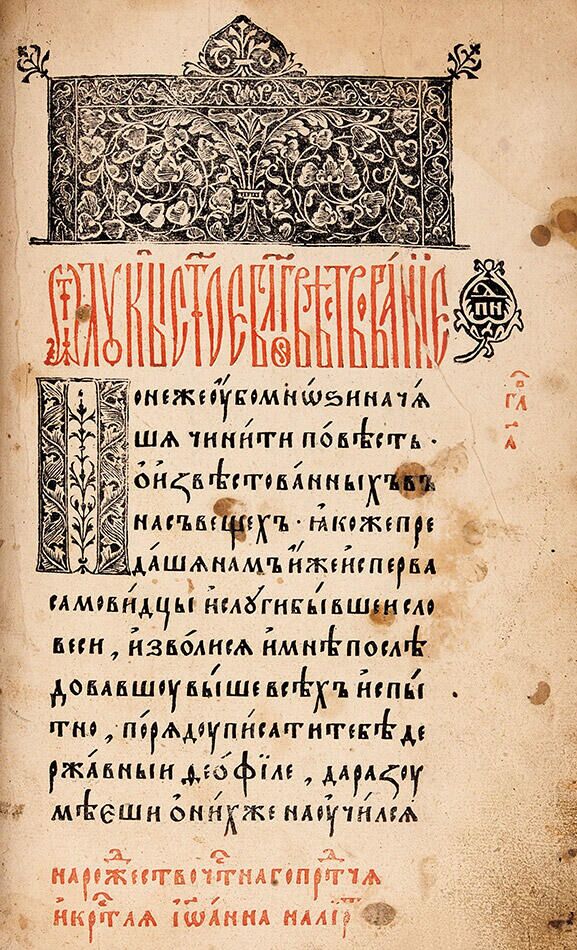 Ѿ лꙋкы ст҃ое бл҃говѣствованїе
пн
понежеоу҆бомнѡѕиначѧ́
шѧ чини́ти по́вѣсть ·
о҆и҆звѣстова́нныхъвъ
насъвещехъ · ꙗ҆кожепре
да́шѧнамъ и҆́жеи҆сперва
самови́дцы и҆слꙋгибы́вшеисло
веси , и҆зво́лисѧ и҆мнѣпослѣ
довавшоувы́шевсѣхъи҆спы́
тно , по́рѧдоуписатитебѣ де
ржа́вныи ѳео́фїле , даразоу
мѣ́еши о҆ни́хженаоучи́лсѧ
нарожⷣествочⷭ҇тнагопрⷪ҇рⷪ҇чѧ
и҆крⷭ҇т҃лѧ і҆ѡ҆а́нна
гл҃а
а҃